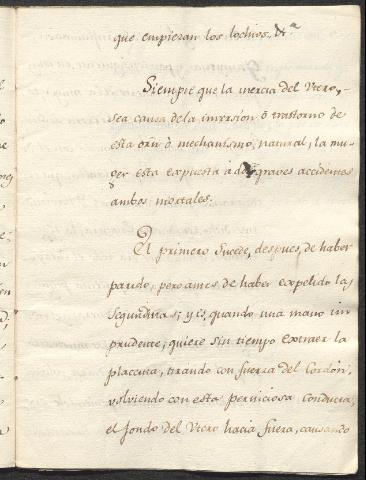 que empiezan los lochios. &ª
Siempre que la inercia del Utero,
sea causa de la inversión ô trastorno de
esta orn ô mechanismo, natural, la mu-
ger esta expuesta à dos graves accidentes
ambos mortales.
El primero sucede, despues, de haber
parido, pero antes de haber expelido las
segundinas; y es, quando una mano im
prudente, quiere sin tiempo extraer la
placenta, tirando con fuerza del Cordón,
volviendo con esta perniciosa conducta,
el fondo del Utero hacia fuera, causando